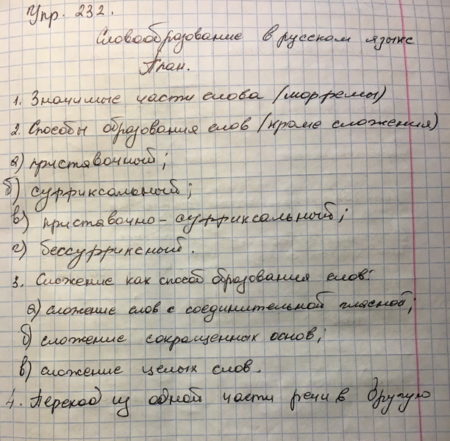 Упр. 232.
Словообразование в русском языке
План.
1. Значимые части слова (морфемы)
2. Способы образования слов (кроме сложения)
а) приставочный;
б) суффиксальный;
в) приставочно-суффиксальный;
г) бессуффиксный.
3. Сложение как способ образования слов:
а) сложение слов с соединительной гласной;
б) сложение сокращенных основ;
в) сложение целых слов.
4. Переход из одной части речи в другую